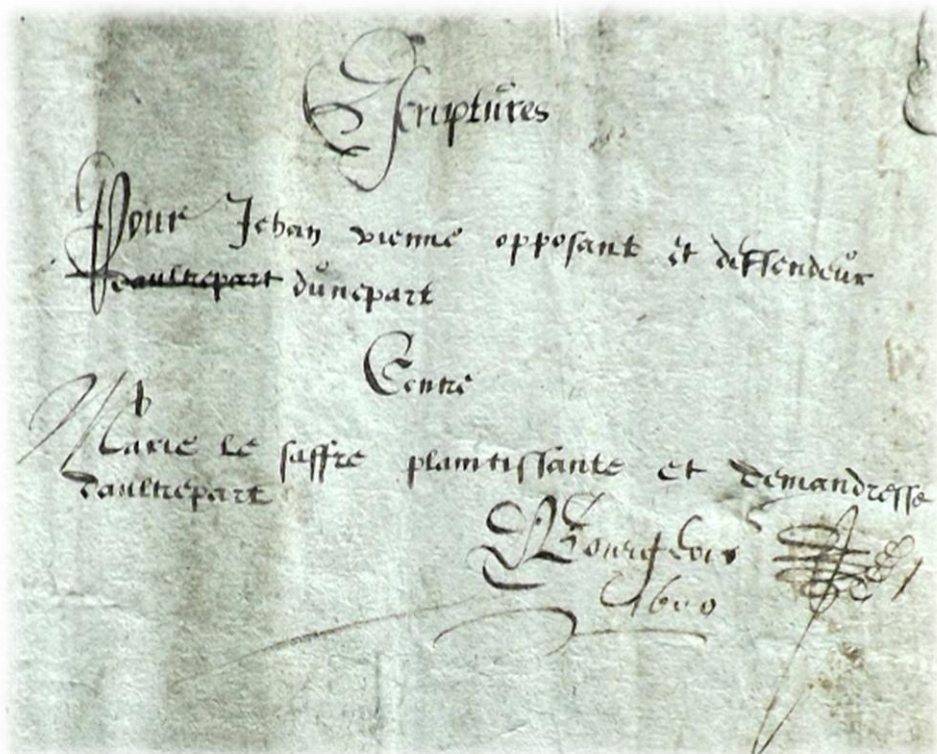 Escriptures
Pour Jehan vienne opposant et deffendeur
daultrepart dunepart
Contre
Marie le saffre plaintissante et demandresse
daultrepart
Bourgeois
1600